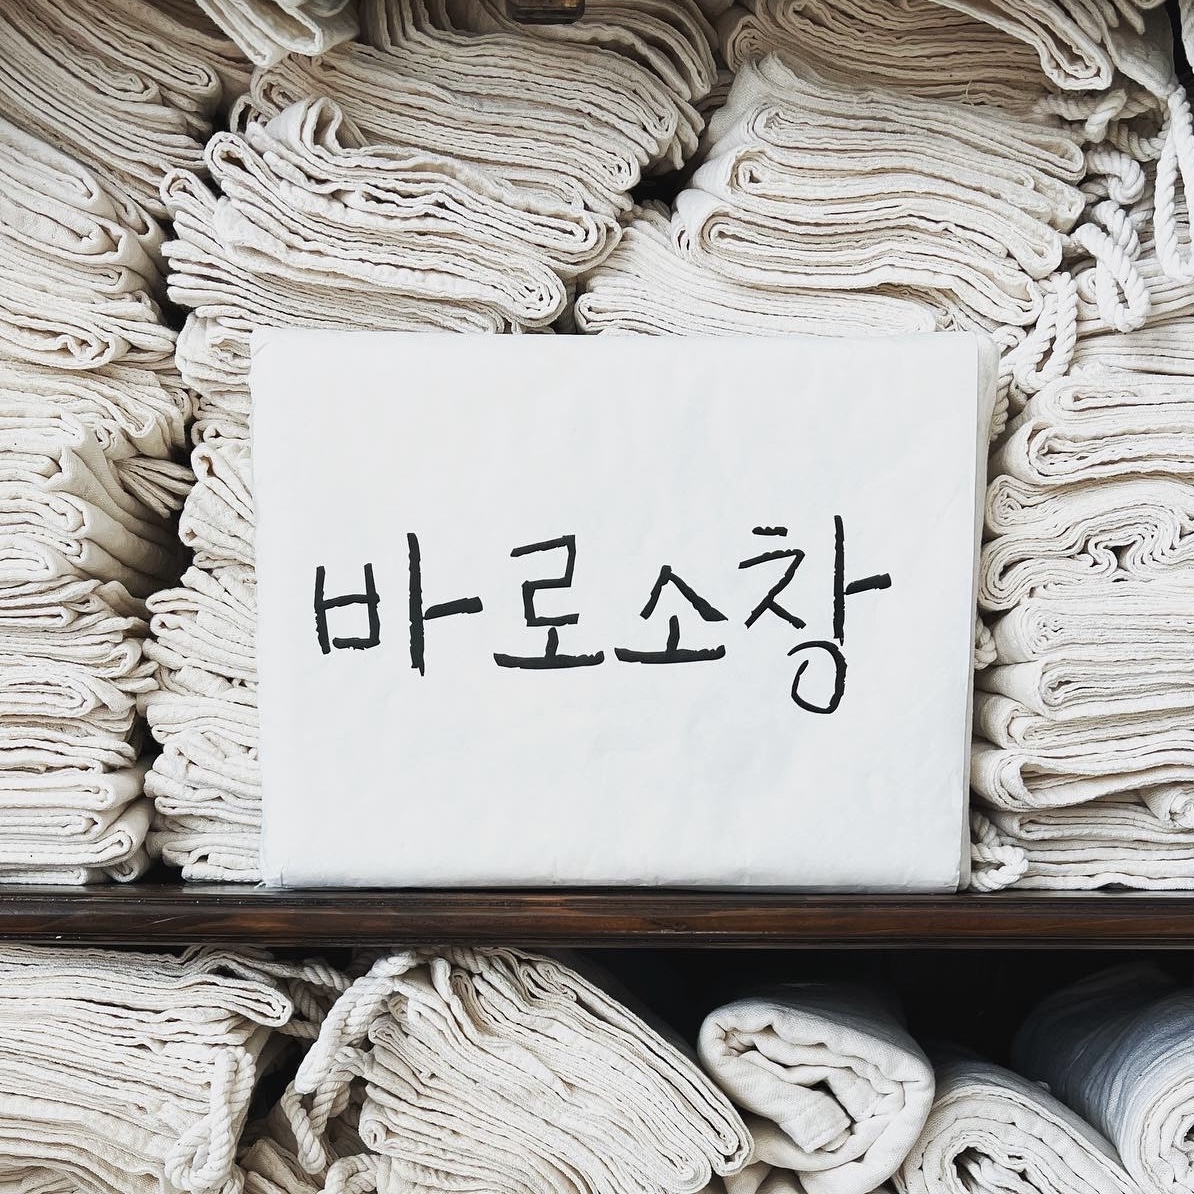 바로소창